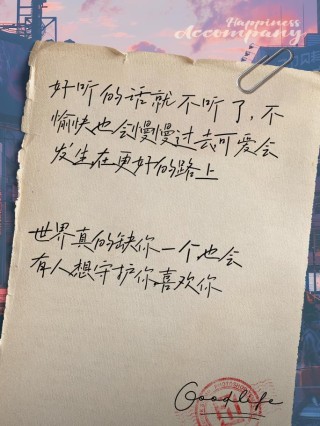 Happiness
Accompany
好听的话就不听了,不
愉快也会慢慢过去可爱会
发生在更好的路上
世界真的缺你一个也会
有人想守护你喜欢你
Goodlife